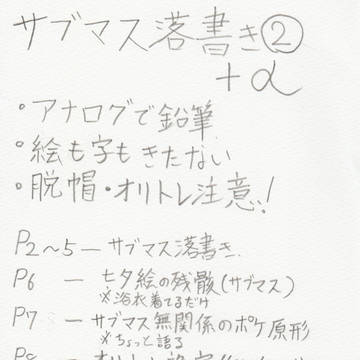 サブマス落書き②
+α
・アナログで鉛筆
・絵も字もきたない
・脱帽・オリトレ注意!
P2~5 ― サブマス落書き
P6 ― 七夕絵の残骸(サブマス)
※浴衣着てるだけ
P7 ― サブマス無関係のポケ原形
※ちょっと語る